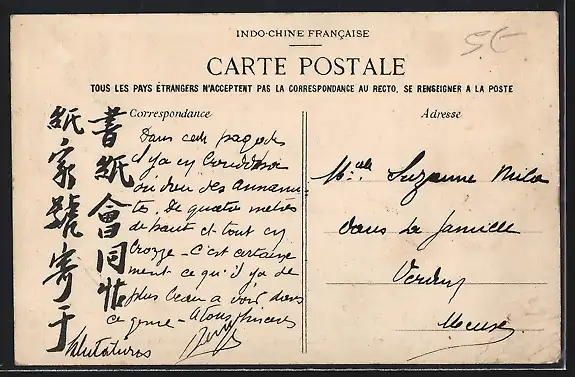 INDO-CHINE FRANÇAISE
5€
CARTE POSTALE
TOUS LES PAYS ÉTRANGERS N'ACCEPTENT PAS LA CORRESPONDANCE AU RECTO, SE RENSEIGNER A LA POSTE
Correspondance
書紙會同帖
紙家號寄于
Dans cette pagode
il y a
ou dieu des Annami-
tes, De quatre mètres
de haut et tout en
bronze - C'est certaine
ment ce qu'il y a de
plus beau a voir dans
ce genre - A tous sincères
Salutations
Adresse
Suzanne
dans la famille
Verdun
Meuse